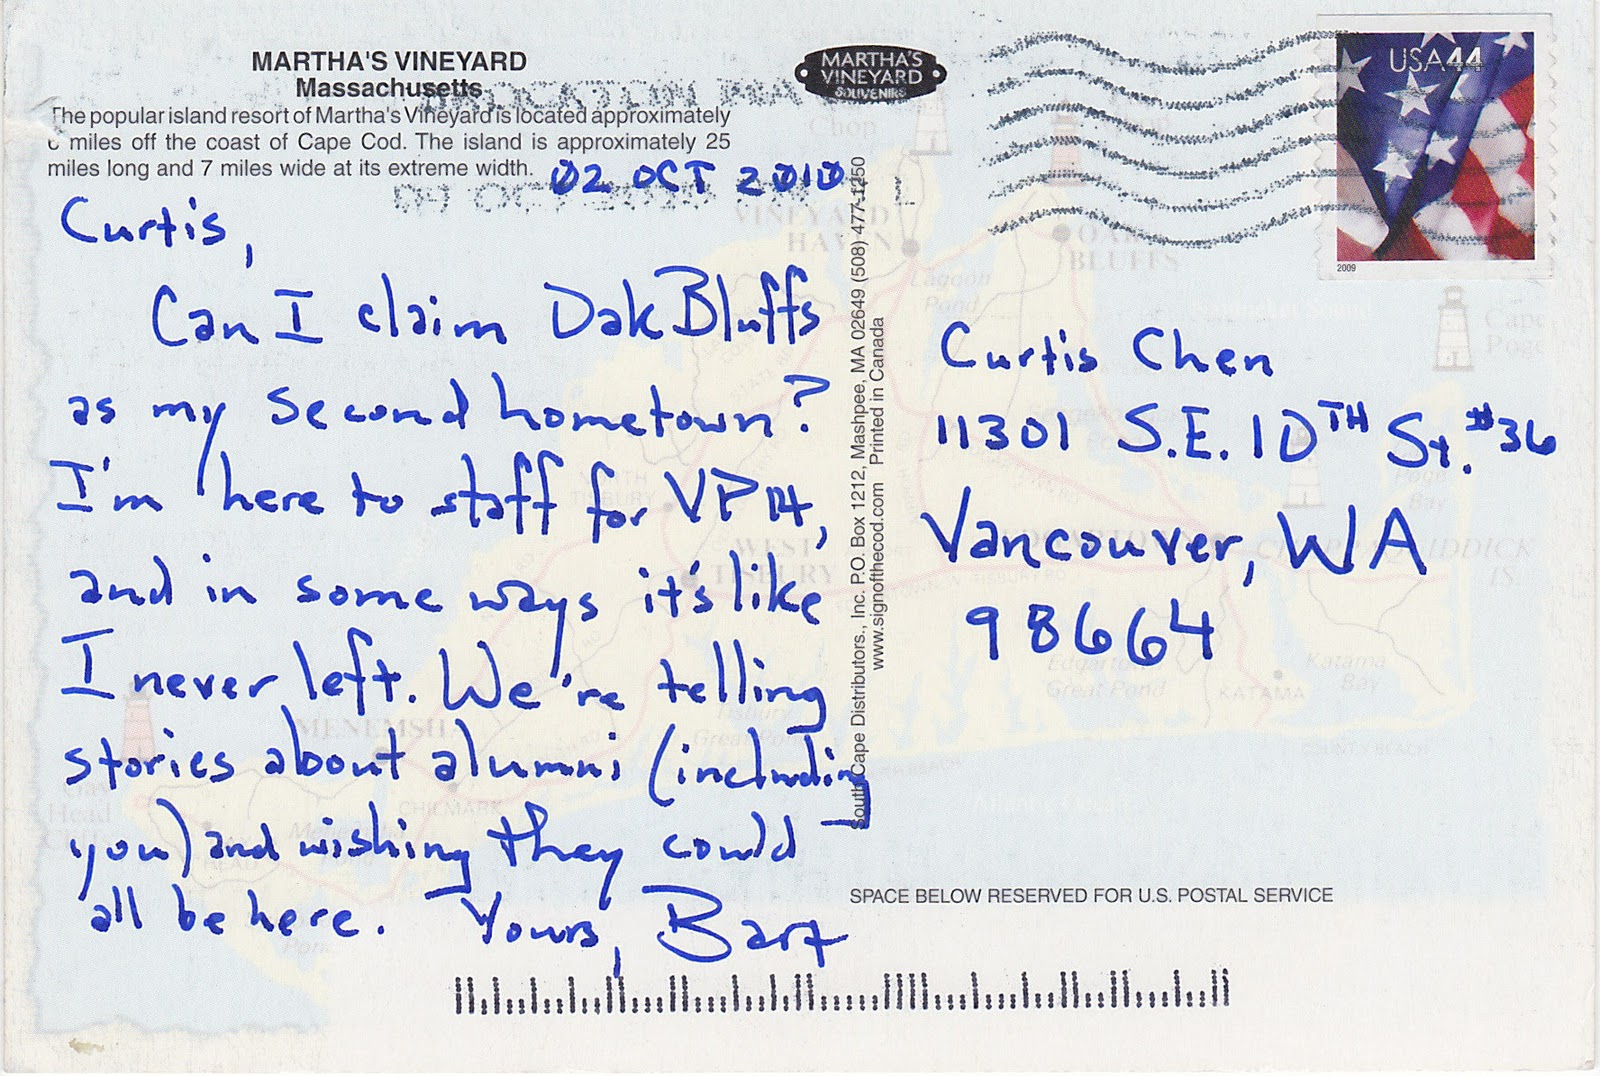 MARTHA'S VINEYARD
Massachusetts
The popular island resort of Martha's Vineyard is located approximately
miles off the coast of Cape Cod. The island is approximately 25
miles long and 7 miles wide at its extreme width.
02 OCT 2010
Curtis,
Can I claim Oak Bluffs
as my second hometown?
I'm here to staff for VP 14,
and in some ways it's like
I never left. We're telling
stories about alumni (including
you) and wishing they could
all be here. Yours, Bart
MARTHA'S
VINEYARD
SOUVENIRS
USA 44
2009
South Cape Distributors., Inc. P.O. Box 1212, Mashpee, MA 02649 (508) 477-1250
www.signofthecod.com Printed in Canada
Curtis Chen
11301 S.E. 10TH St. #36
Vancouver, WA
98664
SPACE BELOW RESERVED FOR U.S. POSTAL SERVICE
VINEYARD
HAVEN
OAK
BLUFFS
Lagoon
Pond
WEST
TISBURY
NORTH
TISBURY
MENEMSHA
CHILMARK
Edgartown
Great Pond
KATAMA
Katama
Bay